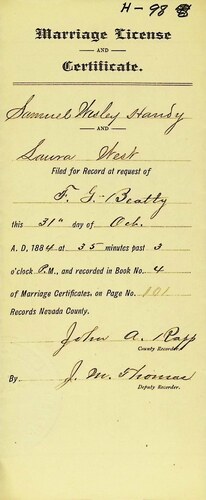 H-98
Marriage License
AND
Certificate.
Samuel Wesley Handy
AND
Laura West
Filed for Record at request of
F. G. Beatty
this 31" day of Oct.
A. D. 1884 at 35 minutes past 3
o'clock P.M., and recorded in Book No. 4
of Marriage Certificates. on Page No. 101
Records Nevada County.
John A. Rapp
County Recorder
By J. M. Thomas
Deputy Recorder.